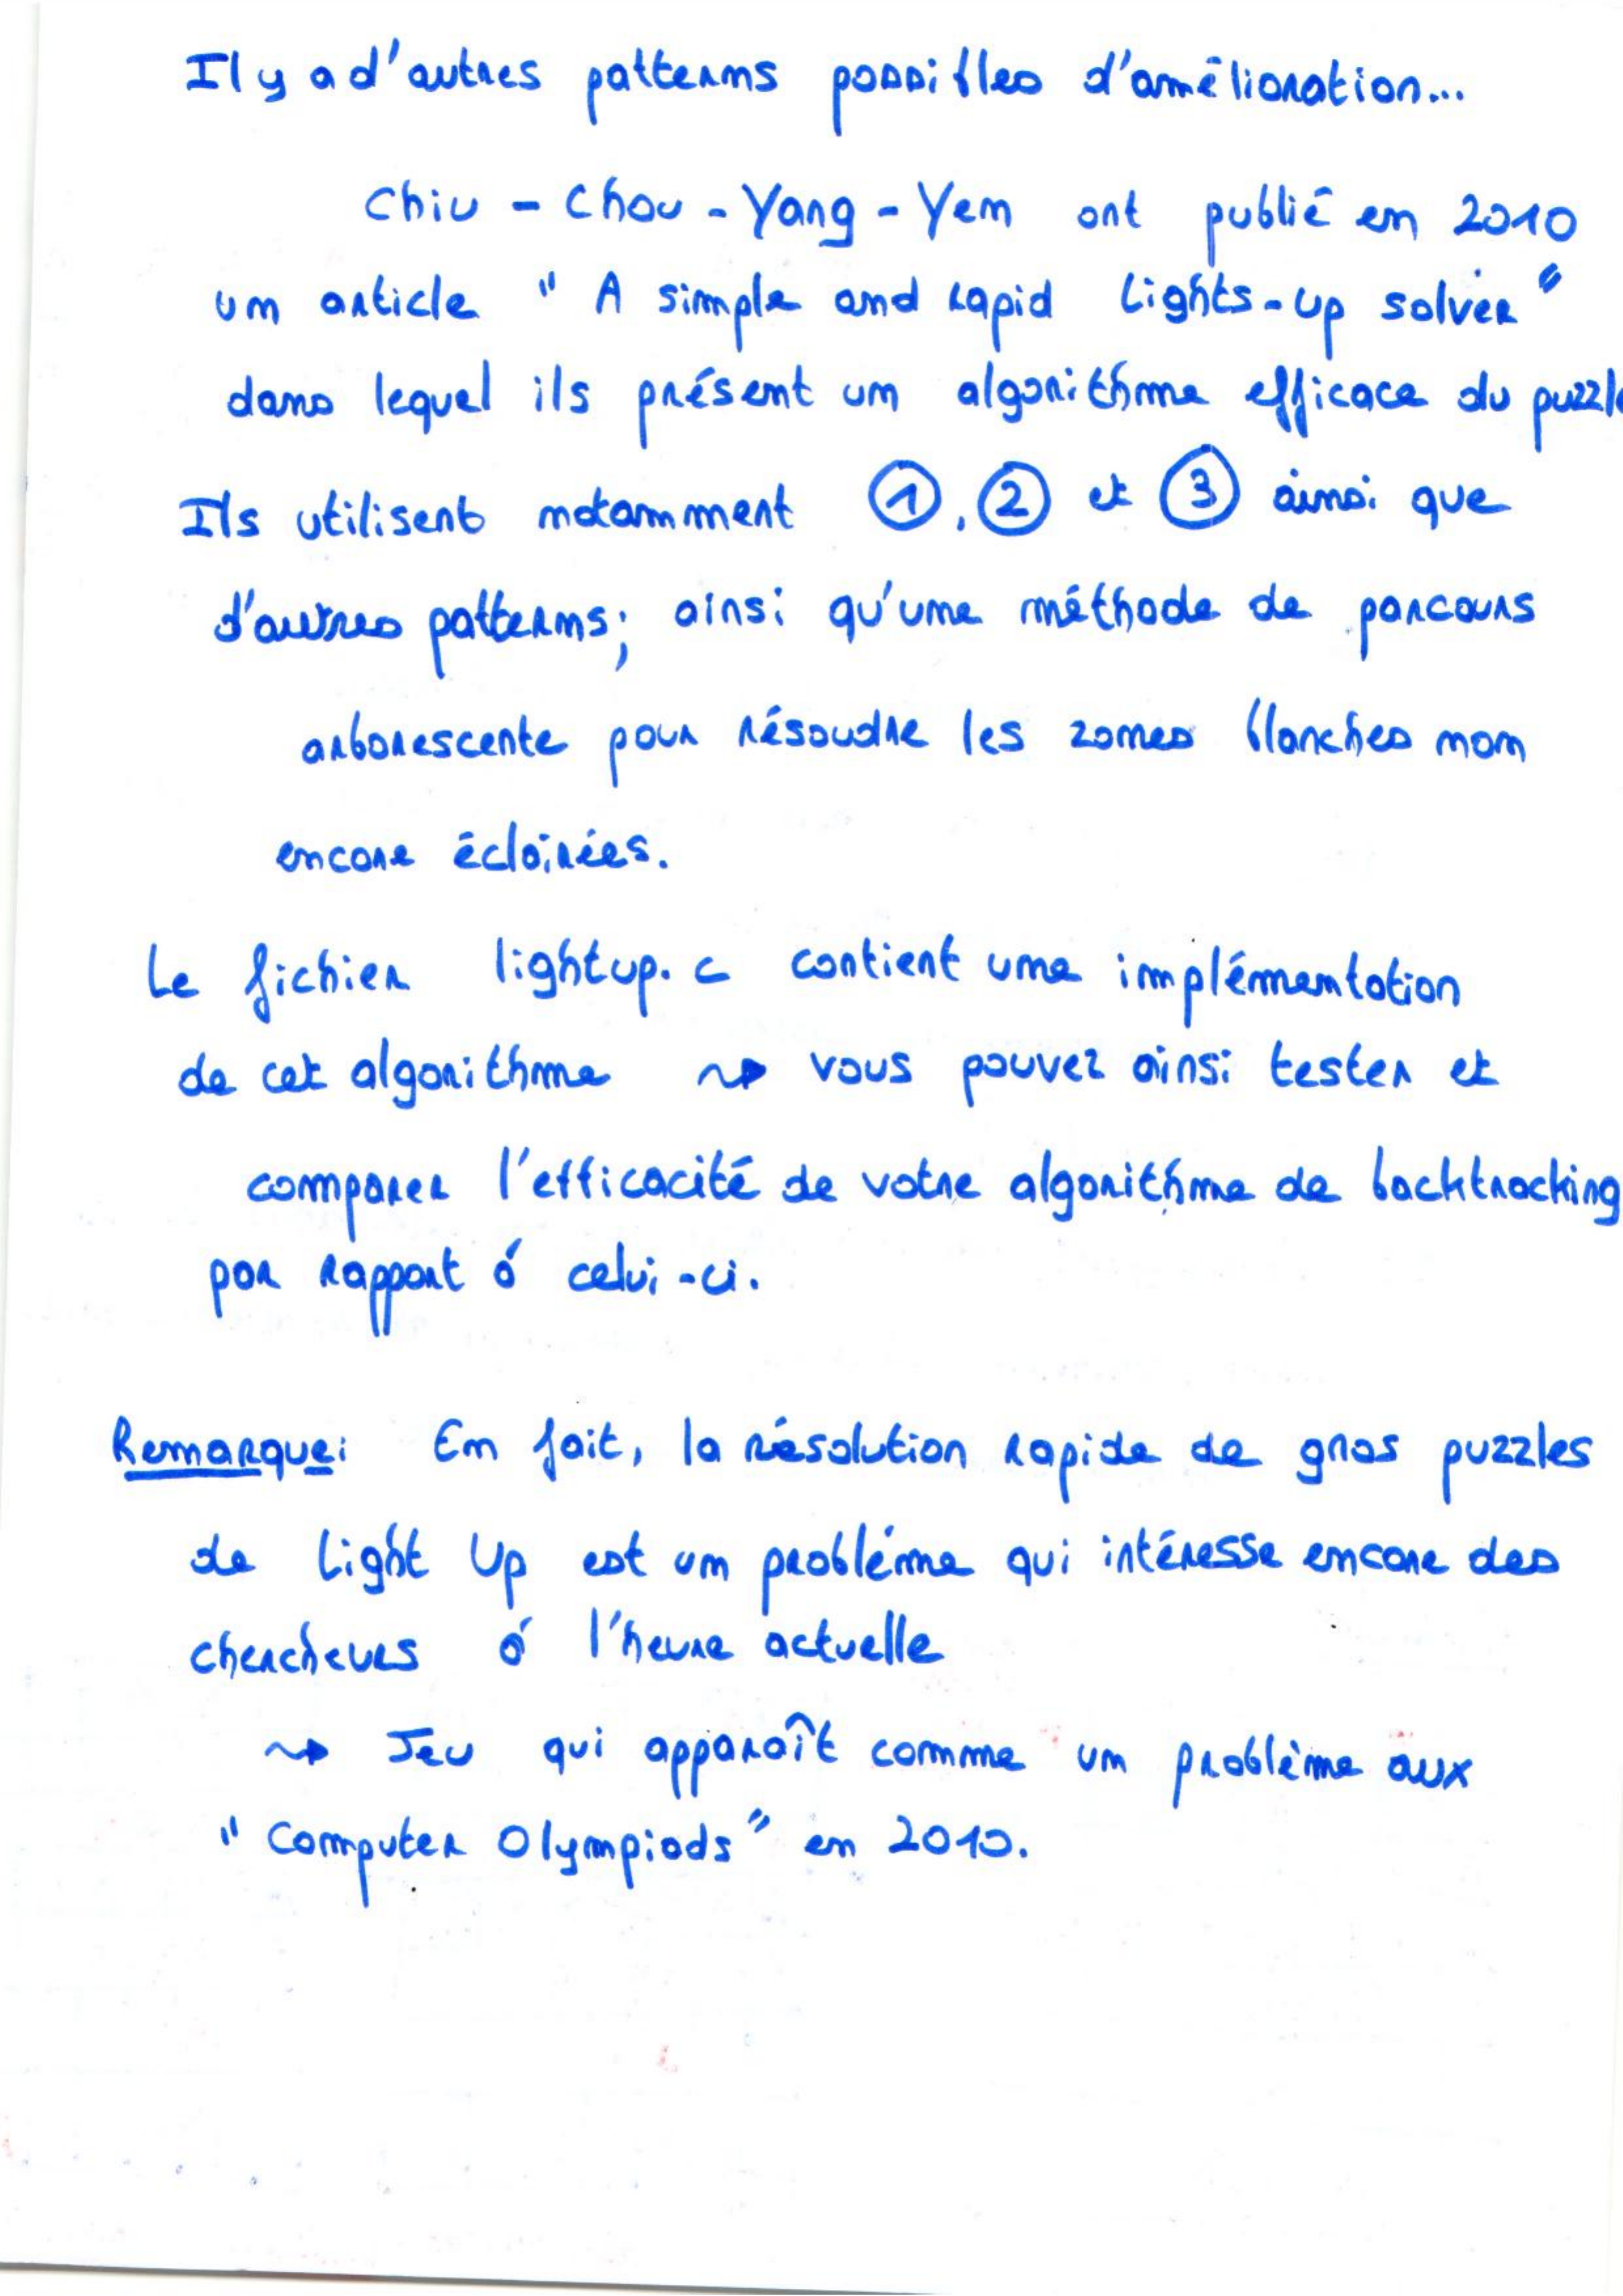 Il y a d'autres patterns possibles d'amélioration...
Chiu - Chou - Yang - Yen ont publié en 2010
un article " A simple and rapid Lights-Up solver "
dans lequel ils présent un algorithme efficace du puzzle
Ils utilisent notamment ①, ② et ③ ainsi que
d'autres patterns; ainsi qu'une méthode de parcours
arborescente pour résoudre les zones blanches non
encore éclairées.
Le fichier lightup.c contient une implémentation
de cet algorithme ⇝ vous pouvez ainsi tester et
comparer l'efficacité de votre algorithme de backtracking
par rapport à celui-ci.
Remarque: En fait, la résolution rapide de gros puzzles
de Light Up est un problème qui intéresse encore des
chercheurs à l'heure actuelle
⇝ Jeu qui apparaît comme un problème aux
" Computer Olympiads " en 2010.